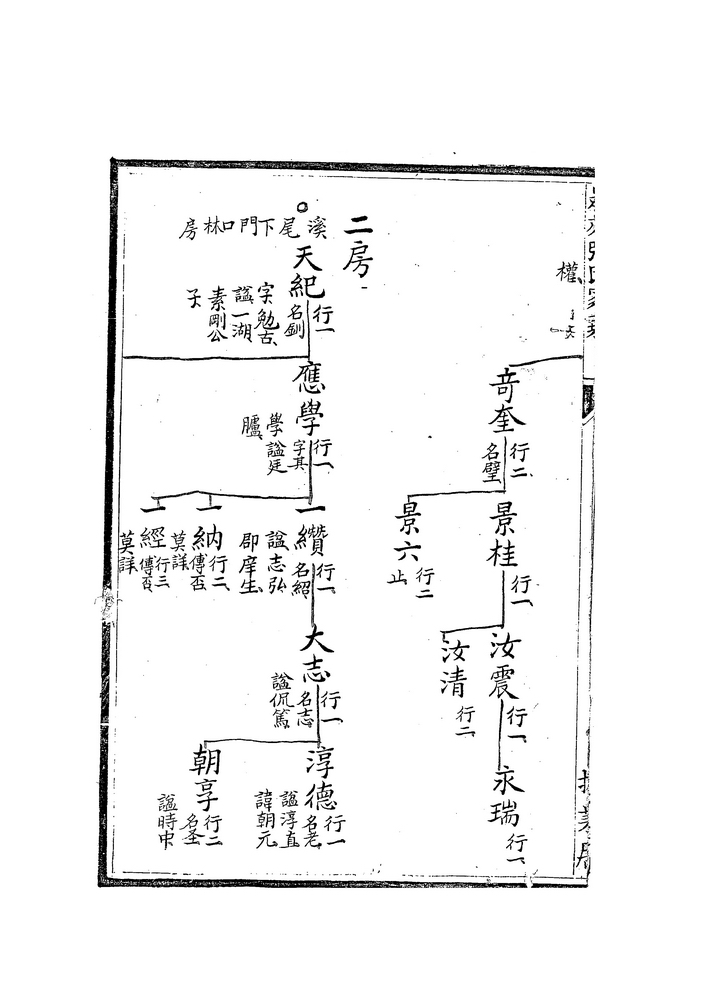 權
奇奎
行二
名璧
景桂
行一
景六
行二
止
汝震
行一
汝清
行二
永瑞
行一
二房
溪尾下門口林房
天紀
行一
名釧
字勉古
諡一湖
素剛公
子
應學
行一
字其
學諡廷
臚
一纘
行一
名紹
諡志弘
郡庠生
一納
行二
傳否
莫詳
一經
行三
傳否
莫詳
大志
行一
名志
諡侃篤
淳德
行一
名老
諡淳直
諱朝元
朝享
行二
名圣
諡時中